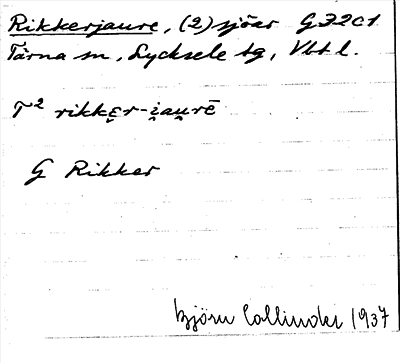 Rikkerjaure, (2) sjöar G72c1
Tärna sn, Lycksele tg, Vbtl.
T² rikkę̣r-i̯au̯rē
G Rikker
Björn Collinder 1937